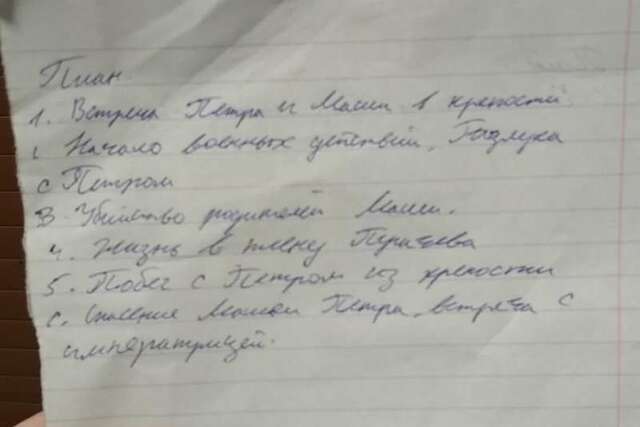 План
1. Встреча Петра и Маши в крепости.
2 Начало военных действий, Разлука
с Петром
3. Убийство родителей Маши.
4. Жизнь в плену Пугачёва
5. Побег с Петром из крепости
6. Спасение Машей Петра, встреча с
императрицей.